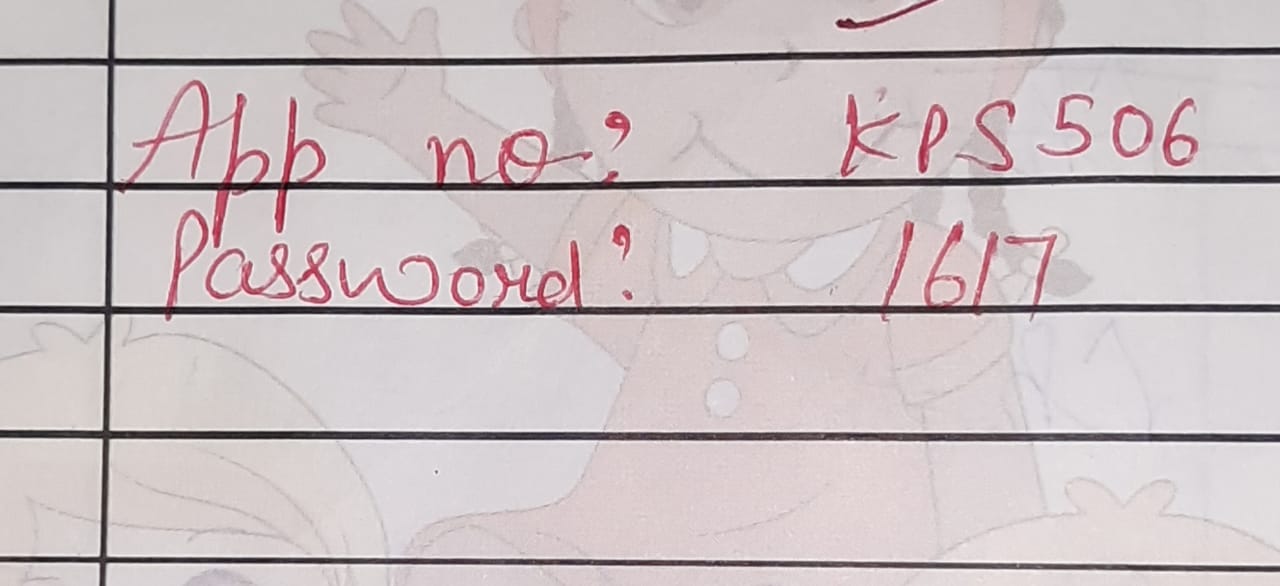 App no: KPS506
Password: 1617